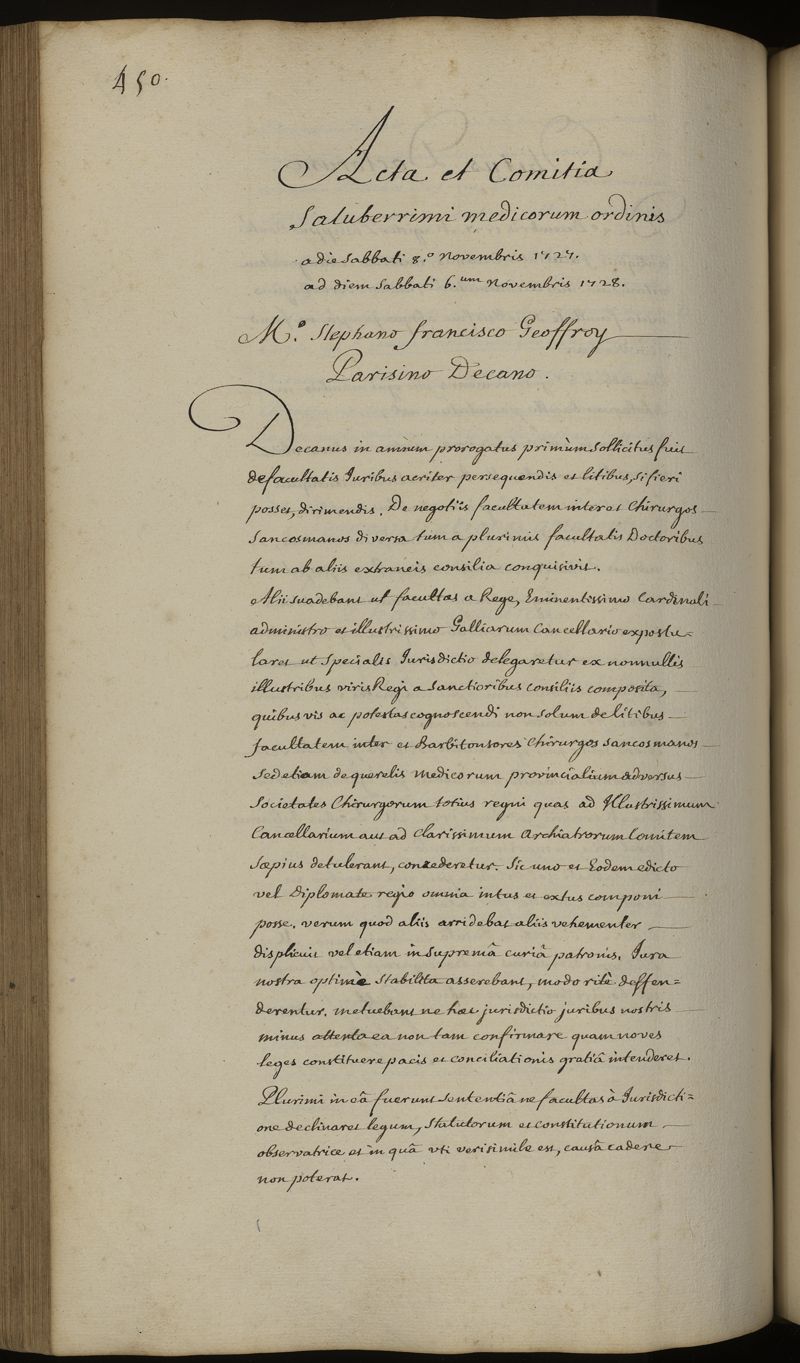 450.
Acta et Comitia
Saluberrimi medicorum ordinis
a die Sabbati 8.º novembris 1727.
ad diem Sabbati 6.um novembris 1728.
M.º Stephano francisco Geoffroy
Parisino Decano.
Decanus in annum prorogatus primùm sollicitus fuit
de facultatis Juribus acriter persequendis et litibus, si fieri
posset, dirimendis. De negotiis facultatem inter et Chirurgos
Sancosmanos diversa tum a plurimis facultatis Doctoribus
tum ab aliis extraneis consilia conquisivit.
Alii suadebant ut facultas a Rege, Eminentissimo Cardinali
administro et illustrissimo Galliarum Cancellario expostu=
laret ut specialis Jurisdictio delegaretur ex nonnullis
illustribus viris Regi a Sanctioribus consiliis composita,
quibus vis ac potestas cognoscendi non solum de litibus
facultatem inter et Barbitonsores Chirurgos sancosmanos
sed etiam de querelis medicorum provincialium adversus
Societates Chirurgorum totius regni quas ad Illustrissimum
Cancellarium aut ad Clarissimum Archiatrorum Comitem
Sæpius detulerant, concederetur. Sic uno et Eodem edicto
vel Diplomate regio omnia intus et extus componi
posse. verum quod aliis arridebat aliis vehementer
displicuit vel etiam in Supremâ curiâ patronis. Jura
nostra optimè stabilita asserebant, modo ritè deffen=
derentur. metuebant ne hæc jurisdictio juribus nostris
minus attenta ea non tam confirmare quam noves
leges constituere pacis et conciliationis gratiâ intenderet.
Plurimi in eâ fuerunt sententiâ ne facultas à Jurisdicti=
one declinaret legum, Statutorum et constitutionum
observatrice et in quâ uti verisimile est, causâ cadere
non poterat.